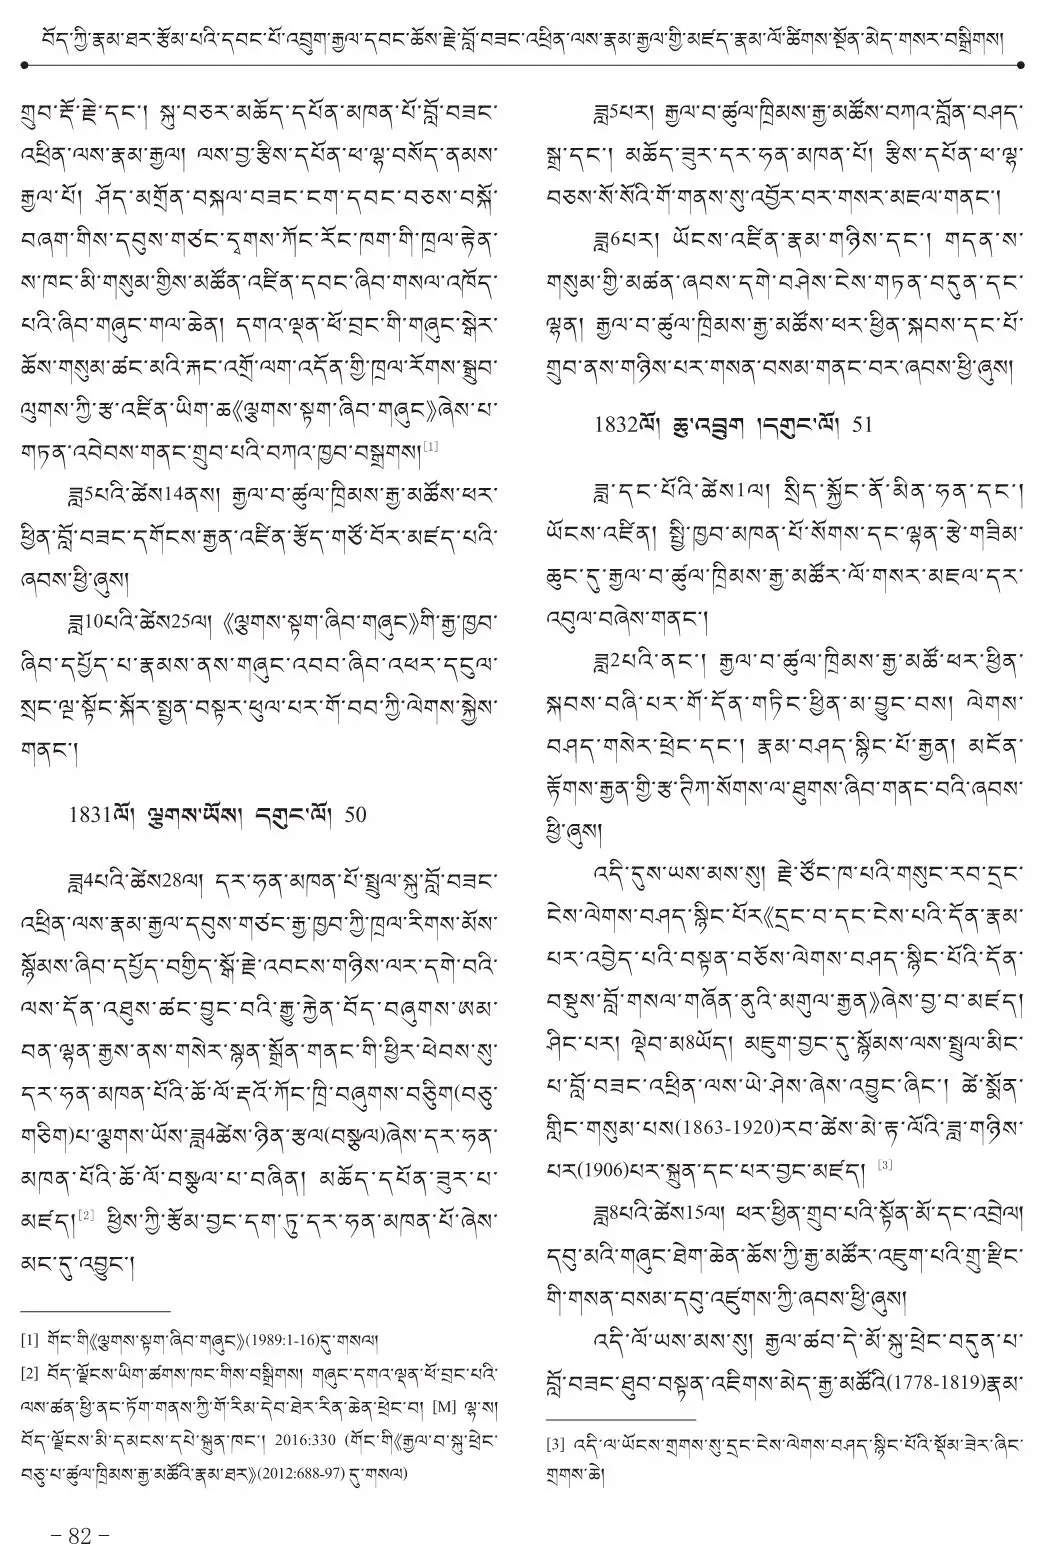 བོད་ཀྱི་རྣམ་ཐར་རྩོམ་པའི་དབང་པོ་འབྲུག་རྒྱལ་དབང་ཆོས་རྗེ་བློ་བཟང་འཕྲིན་ལས་རྣམ་རྒྱལ་གྱི་མཛད་རྣམ་ལོ་ཚིགས་སྔོན་མེད་གསར་བསྒྲིགས།
གྲུབ་རྡོ་རྗེ་དང་། སྐུ་བཅར་མཆོད་དཔོན་མཁན་པོ་བློ་བཟང་
འཕྲིན་ལས་རྣམ་རྒྱལ། ལས་བྱ་རྩིས་དཔོན་ཕ་ལྷ་བསོད་ནམས་
རྒྱལ་པོ། ཤོད་མགྲོན་བསྐལ་བཟང་ངག་དབང་བཅས་བསྐོ་
བཞག་གིས་དབུས་གཙང་དྭགས་ཀོང་རོང་ཁག་གི་ཁྲལ་རྟེན་
ས་ཁང་མི་གསུམ་གྱིས་མཚོན་འཛིན་དབང་ཞིབ་གསལ་འཁོད་
པའི་ཞིབ་གཞུང་གལ་ཆེན། དགའ་ལྡན་ཕོ་བྲང་གི་གཞུང་སྒེར་
ཆོས་གསུམ་ཚང་མའི་རྐང་འགྲོ་ལག་འདོན་གྱི་ཁྲལ་རོགས་སྒྲུབ་
ལུགས་ཀྱི་རྩ་འཛིན་ཡིག་ཆ《ལྕགས་སྟག་ཞིབ་གཞུང》ཞེས་པ་
གཏན་འབེབས་གནང་གྲུབ་པའི་བཀའ་ཁྱབ་བསྒྲགས།[1]
ཟླ5པའི་ཚེས14ནས། རྒྱལ་བ་ཚུལ་ཁྲིམས་རྒྱ་མཚོས་ཕར་
ཕྱིན་བློ་བཟང་དགོངས་རྒྱན་འཛིན་རྩོད་གཙོ་བོར་མཛད་པའི་
ཞབས་ཕྱི་ཞུས།
ཟླ10པའི་ཚེས25ལ། 《ལྕགས་སྟག་ཞིབ་གཞུང》གི་རྒྱ་ཁྱབ་
ཞིབ་དཔྱོད་པ་རྣམས་ནས་གཞུང་འབབ་ཞིབ་འཕར་དངུལ་
སྲང་ལྔ་སྟོང་སྐོར་སྤྱན་བསྟར་ཕུལ་པར་གོ་བབ་ཀྱི་ལེགས་སྐྱེས་
གནང་།
1831ལོ། ལྕགས་ཡོས། དགུང་ལོ། 50
ཟླ4པའི་ཚེས28ལ། དར་ཧན་མཁན་པོ་སྤྲུལ་སྐུ་བློ་བཟང་
འཕྲིན་ལས་རྣམ་རྒྱལ་དབུས་གཙང་རྒྱ་ཁྱབ་ཀྱི་ཁྲལ་རིགས་མོས་
སྙོམས་ཞིབ་དཔྱོད་བགྱིད་སྒོ་རྗེ་འབངས་གཉིས་ལར་དགེ་བའི་
ལས་དོན་འཐུས་ཚང་བྱུང་བའི་རྒྱུ་རྐྱེན་བོད་བཞུགས་ཨམ་
བན་ལྷན་རྒྱས་ནས་གསེར་སྙན་སྒྲོན་གནང་གི་ཕྱིར་ཕེབས་སུ་
དར་ཧན་མཁན་པོའི་ཆོ་ལོ་རྡའོ་ཀོང་ཁྲི་བཞུགས་བཅིུག(བཅུ་
གཅིག)པ་ལྕགས་ཡོས་ཟླ4ཚེས་ཉིན་རྩལ(བསྩལ)ཞེས་དར་ཧན་
མཁན་པོའི་ཆོ་ལོ་བསྩལ་པ་བཞིན། མཆོད་དཔོན་ཟུར་པ་
མཛད།[2] ཕྱིས་ཀྱི་རྩོམ་བྱང་དག་ཏུ་དར་ཧན་མཁན་པོ་ཞེས་
མང་དུ་འབྱུང་།
[1] གོང་གི《ལྕགས་སྟག་ཞིབ་གཞུང》(1989:1-16)དུ་གསལ།
[2] བོད་ལྗོངས་ཡིག་ཚགས་ཁང་གིས་བསྒྲིགས། གཞུང་དགའ་ལྡན་ཕོ་བྲང་པའི་
ལས་ཚན་ཕྱི་ནང་ཏོག་གནས་ཀྱི་གོ་རིམ་དེབ་ཐེར་རིན་ཆེན་ཕྲེང་བ། [M] ལྷ་ས།
བོད་ལྗོངས་མི་དམངས་དཔེ་སྐྲུན་ཁང་། 2016:330 (གོང་གི《རྒྱལ་བ་སྐུ་ཕྲེང་
བཅུ་པ་ཚུལ་ཁྲིམས་རྒྱ་མཚོའི་རྣམ་ཐར》(2012:688-97) དུ་གསལ)
ཟླ5པར། རྒྱལ་བ་ཚུལ་ཁྲིམས་རྒྱ་མཚོས་བཀའ་བློན་བཤད་
སྒྲ་དང་། མཆོད་ཟུར་དར་ཧན་མཁན་པོ། རྩིས་དཔོན་ཕ་ལྷ་
བཅས་སོ་སོའི་གོ་གནས་སུ་འབྱོར་བར་གསར་མཇལ་གནང་།
ཟླ6པར། ཡོངས་འཛིན་རྣམ་གཉིས་དང་། གདན་ས་
གསུམ་གྱི་མཚན་ཞབས་དགེ་བཤེས་ངེས་གཏན་བདུན་དང་
ལྷན། རྒྱལ་བ་ཚུལ་ཁྲིམས་རྒྱ་མཚོས་ཕར་ཕྱིན་སྐབས་དང་པོ་
གྲུབ་ནས་གཉིས་པར་གསན་བསམ་གནང་བར་ཞབས་ཕྱི་ཞུས།
1832ལོ། ཆུ་འབྲུག །དགུང་ལོ། 51
ཟླ་དང་པོའི་ཚེས1ལ། སྲིད་སྐྱོང་ནོ་མིན་ཧན་དང་།
ཡོངས་འཛིན། སྤྱི་ཁྱབ་མཁན་པོ་སོགས་དང་ལྷན་རྩེ་གཟིམ་
ཆུང་དུ་རྒྱལ་བ་ཚུལ་ཁྲིམས་རྒྱ་མཚོར་ལོ་གསར་མཇལ་དར་
འབུལ་བཞེས་གནང་།
ཟླ2པའི་ནང་། རྒྱལ་བ་ཚུལ་ཁྲིམས་རྒྱ་མཚོ་ཕར་ཕྱིན་
སྐབས་བཞི་པར་གོ་དོན་གཏིང་ཕྱིན་མ་བྱུང་བས། ལེགས་
བཤད་གསེར་ཕྲེང་དང་། རྣམ་བཤད་སྙིང་པོ་རྒྱན། མངོན་
རྟོགས་རྒྱན་གྱི་རྩ་ཊཱིཀ་སོགས་ལ་ཐུགས་ཞིབ་གནང་བའི་ཞབས་
ཕྱི་ཞུས།
འདི་དུས་ཡས་མས་སུ། རྗེ་ཙོང་ཁ་པའི་གསུང་རབ་དྲང་
ངེས་ལེགས་བཤད་སྙིང་པོར《དྲང་བ་དང་ངེས་པའི་དོན་རྣམ་
པར་འབྱེད་པའི་བསྟན་བཅོས་ལེགས་བཤད་སྙིང་པོའི་དོན་
བསྡུས་བློ་གསལ་གཞོན་ནུའི་མགུལ་རྒྱན》ཞེས་བྱ་བ་མཛད།
ཤིང་པར། ལྡེབ་མ8ཡོད། མཇུག་བྱང་དུ་སྙོམས་ལས་སྤྲུལ་མིང་
པ་བློ་བཟང་འཕྲིན་ལས་ཡེ་ཤེས་ཞེས་འབྱུང་ཞིང་། ཚེ་སྨོན་
གླིང་གསུམ་པས(1863-1920)རབ་ཚེས་མེ་རྟ་ལོའི་ཟླ་གཉིས་
པར(1906)པར་སྐྲུན་དང་པར་བྱང་མཛད། [3]
ཟླ8པའི་ཚེས15ལ། ཕར་ཕྱིན་གྲུབ་པའི་སྟོན་མོ་དང་འབྲེལ།
དབུ་མའི་གཞུང་ཐེག་ཆེན་ཆོས་ཀྱི་རྒྱ་མཚོར་འཇུག་པའི་གྲུ་རྫིང་
གི་གསན་བསམ་དབུ་འཛུགས་ཀྱི་ཞབས་ཕྱི་ཞུས།
འདི་ལོ་ཡས་མས་སུ། རྒྱལ་ཚབ་དེ་མོ་སྐུ་ཕྲེང་བདུན་པ་
བློ་བཟང་ཐུབ་བསྟན་འཇིགས་མེད་རྒྱ་མཚོའི(1778-1819)རྣམ་
[3] འདི་ལ་ཡོངས་གྲགས་སུ་དྲང་ངེས་ལེགས་བཤད་སྙིང་པོའི་སྡོམ་ཟེར་ཞིང་
གྲགས་ཆེ།
- 82 -